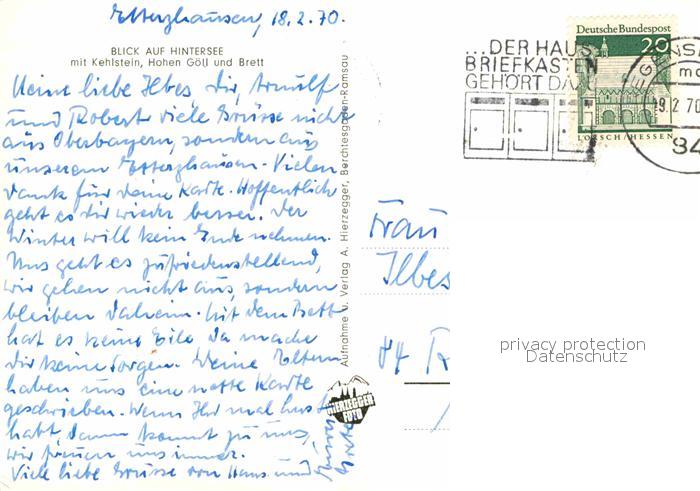 Etterzhausen, 18.2.70.
BLICK AUF HINTERSEE
mit Kehlstein, Hohen Göll und Brett
Meine liebe Ilbes, dir, Arnulf
und Robert viele Grüsse nicht
aus Oberbayern, sondern aus
unserem Etterzhausen. Vielen
Dank für deine Karte. Hoffentlich
geht es dir wieder besser. Der
Winter will kein Ende nehmen.
Uns geht es zufriedenstellend,
wir gehen nicht aus, sondern
bleiben daheim. Mit dem Bett
hat es keine Eile, da mache
dir keine Sorgen. Deine Eltern
haben uns eine nette Karte
geschrieben. Wenn Ihr mal Lust
habt, dann kommt zu uns,
wir freuen uns immer.
Viele liebe Grüsse von Hans und
Aufnahme u. Verlag A. Hierzegger, Berchtesgaden-Ramsau
HIERZEGGER
FOTO
...DER HAUS
BRIEFKASTEN
GEHÖRT DA
Deutsche Bundespost
20
LORSCH/HESSEN
EGENS
19.2.70
84
Frau
Ilbes
84 R
privacy protection
Datenschutz